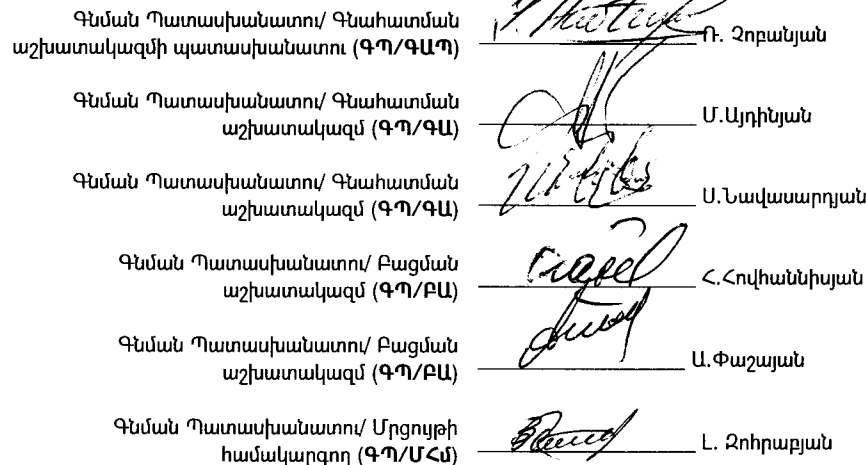 Գնման Պատասխանատու/ Գնահատման
աշխատակազմի պատասխանատու (ԳՊ/ԳԱՊ)
Ռ. Չոբանյան
Գնման Պատասխանատու/ Գնահատման
աշխատակազմ (ԳՊ/ԳԱ)
Մ.Այդինյան
Գնման Պատասխանատու/ Գնահատման
աշխատակազմ (ԳՊ/ԳԱ)
Ս.Նավասարդյան
Գնման Պատասխանատու/ Բացման
աշխատակազմ (ԳՊ/ԲԱ)
Հ.Հովհաննիսյան
Գնման Պատասխանատու/ Բացման
աշխատակազմ (ԳՊ/ԲԱ)
Ա.Փաշայան
Գնման Պատասխանատու/ Մրցույթի
համակարգող (ԳՊ/ՄՀմ)
Լ. Զոհրաբյան